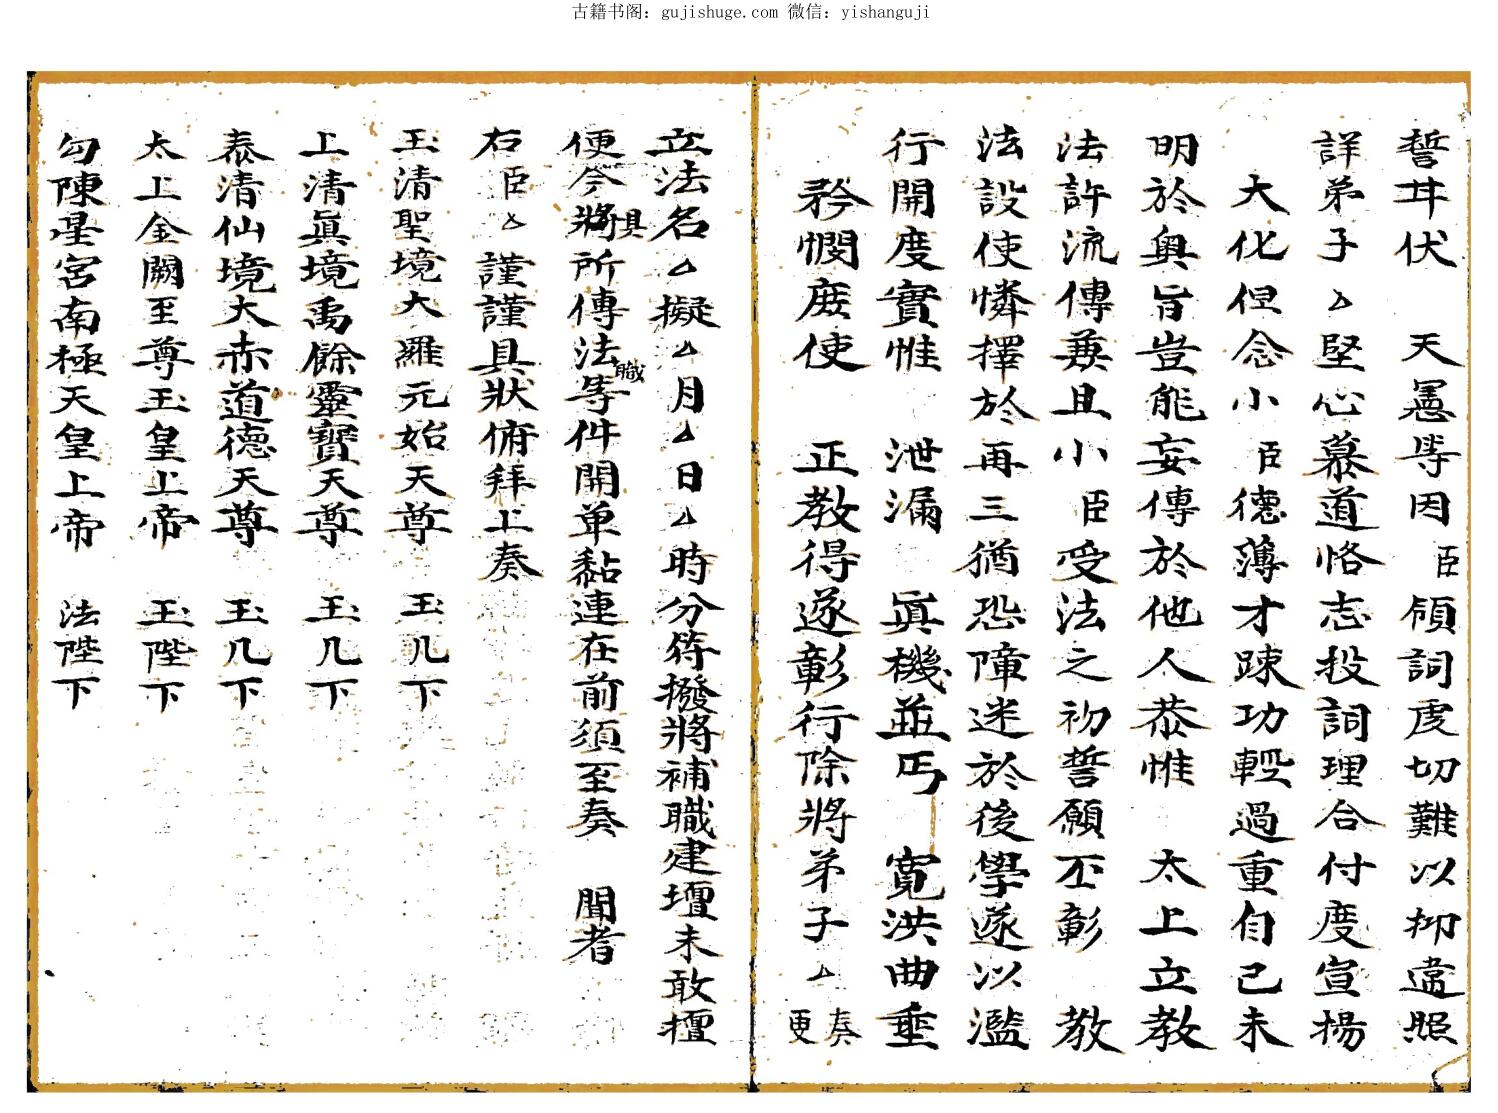 古籍书阁：gujishuge.com 微信：yishanguji
誓廾伏　天慝等因臣領詞虔切難以抑違照
詳弟子厶堅心慕道恪志投詞理合付度宣揚
大化但念小臣德薄才踈功輕過重自己未
明於奥旨豈能妄傳於他人恭惟　太上立教
法許流傳兼且小臣受法之初誓願丕彰　教
法設使憐擇於再三猶恐障迷於後學遂以濫
行開度實惟　泄漏　眞機並丐　寬洪曲垂
矜憫庻使　正教得遂彰行除將弟子厶奏更
立法名厶擬厶月厶日厶時分符撥將補職建壇未敢擅
便今將具所傳法職等件開单黏連在前須至奏　聞者
右臣厶謹謹具狀俯拜上奏
玉清聖境大羅元始天尊　玉几下
上清眞境禹餘靈寶天尊　玉几下
泰清仙境大赤道德天尊　玉几下
太上金闕至尊玉皇上帝　玉陛下
勾陳星宮南極天皇上帝　法陛下